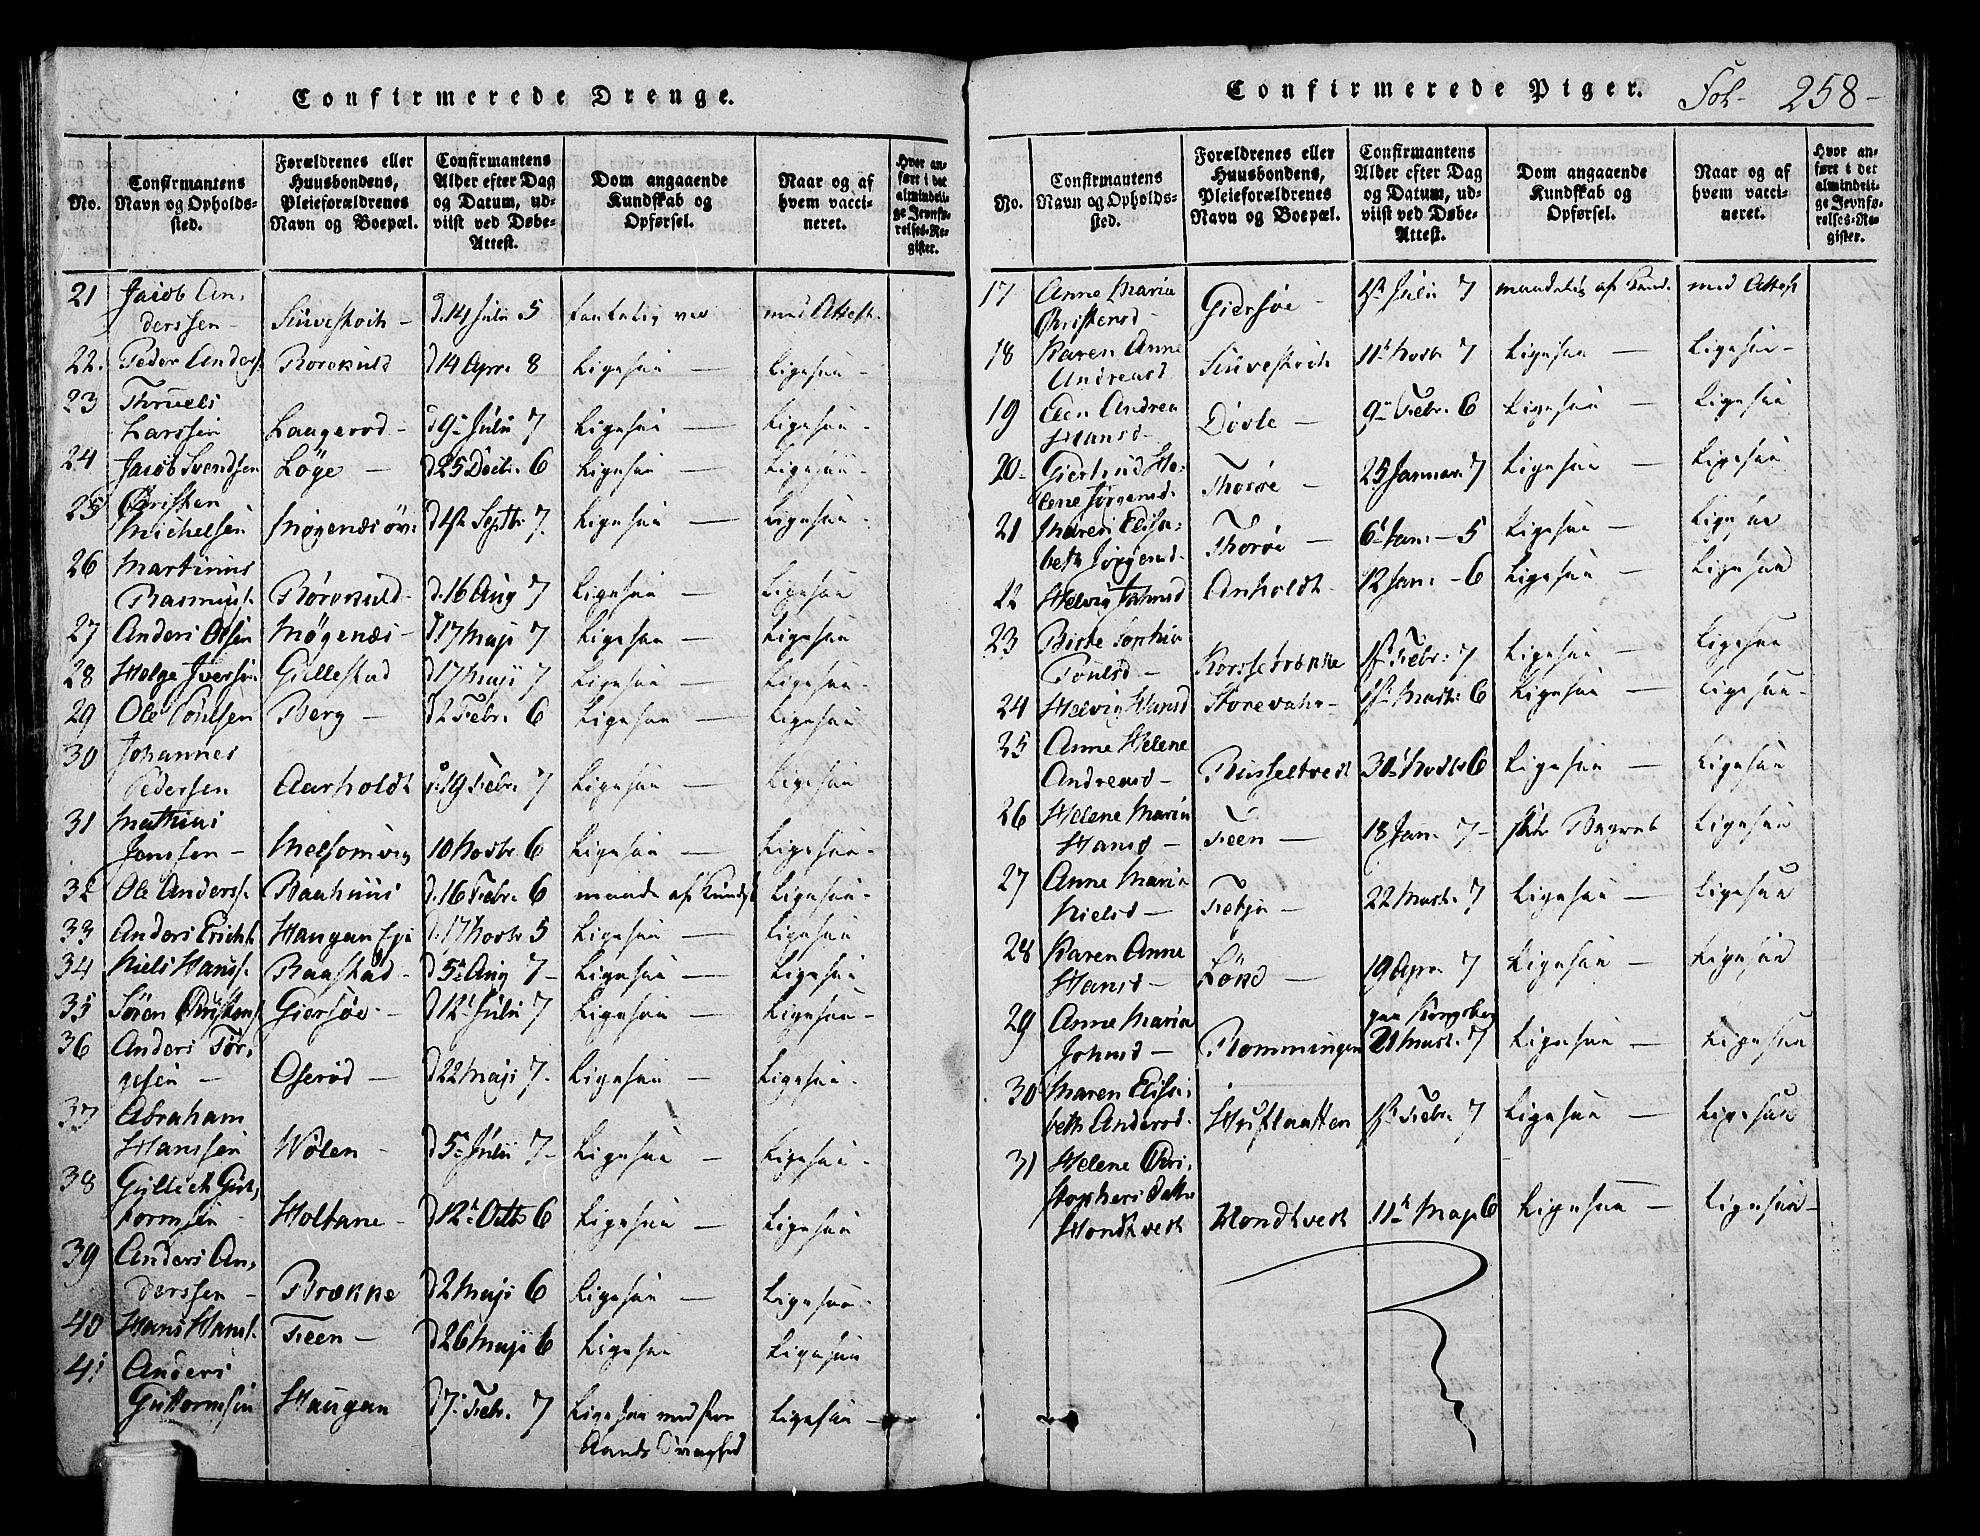 Confirmerede Drenge.
No.
Confirmantens
Navn og Opholds-
sted.
Forældrenes eller
Huusbondens,
Pleieforældrenes
Navn og Boepæl.
Confirmantens
Alder efter Dag
og Datum, ud-
viist ved Døbe-
Attest.
Dom angaaende
Kundskab og
Opførsel.
Naar og af
hvem vacci-
neret.
Hvor an-
ført i det
almindeli-
ge Jevnfø-
relses-Re-
gister.
21 Jacob An-
derssen - d. 14 Julii 5 med Attest.
22. Peder Anders. d 14 Apr. 8 Ligesaa — Ligesaa -
23 Thruels
Larssen Laugerød - d 9 Julii 7 Ligesaa — Ligesaa -
24 Jacob Svendsen Løye — d 25 Decbr. 6 Ligesaa — Ligesaa -
25 Christen
Michelsen d 4de Septbr 7. Ligesaa — Ligesaa -
26 Martinus
Rasmuss. d. 16 Aug 7 Ligesaa — Ligesaa
27 Anders Olsen Møgenæs - d 17 Maji 7 Ligesaa — Ligesaa
28 Helge Iversen Gillestad d 17 Maji 7 Ligesaa — Ligesaa -
29 Ole Poulsen Berg — d 2 Febr. 6 Ligesaa — Ligesaa
30 Johannes
Pedersen Aarholdt d. 19 Febr. 7 Ligesaa — Ligesaa
31 Mathias
Jonssen - Melsomvig 10 Novbr 6 Ligesaa — Ligesaa -
32 Ole Anderss. Baahuus d. 16 Febr. 6 maade. af Kundsk. Ligesaa -
33 Anders Erichs. Haugan d. 17 Novbr 5 Ligesaa — Ligesaa
34 Niels Hanss. Raastad - d 5 Aug 7 - Ligesaa — Ligesaa
35 Søren Christens. Giersøe - d 12 Julii 7 Ligesaa — Ligesaa -
36 Anders Tør-
gesen — Oserød — d 22 Maji 7. Ligesaa — Ligesaa -
37 Abraham
Hanssen Wølen - d 5 Julii 7 - Ligesaa — Ligesaa -
38 Gullich Gut-
tormsen - Holtane - d 12 Octb 6 Ligesaa — Ligesaa
39 Anders An-
derssen - Brække d. 2 Maji 6 Ligesaa — Ligesaa -
40 Hans Hanss. Feen — d 26 Maji 6 Ligesaa Ligesaa
41 Anders
Guttormsen Haugan d 7. Febr. 7 Ligesaa med stor Ligesaa -
Aands Svaghed
Confirmerede Piger. Fol- 258-
No.
Confirmantens
Navn og Opholds-
sted.
Forældrenes eller
Huusbondens,
Pleieforældrenes
Navn og Boepæl.
Confirmantens
Alder efter Dag
og Datum, ud-
viist ved Døbe-
Attest.
Dom angaaende
Kundskab og
Opførsel.
Naar og af
hvem vacci-
neret.
Hvor an-
ført i det
almindeli-
ge Jevnfø-
relses-Re-
gister.
17 Anne Maria
Christensd - Giersøe - Julii 7 maadelig af Kund. med Attest
18 Karen Anne
Andreasd 11 Novbr 7 Ligesaa — Ligesaa -
19 Elen Andrea
Hansd - Døvle — 9 Febr. 6 Ligesaa — Ligesaa
20 - Giertrud He-
lene Jørgensd. Thorøe - 25 Januar. 7 Ligesaa — Ligesaa
21 Maren Elisa-
beth Jørgensd. Thorøe — 6 Jan. - 5 Ligesaa — Ligesaa
22 Helvig Jahnsd Anholdt - 12 Jan. - 6 Ligesaa — Ligesaa
23 Birte Sophia
Poulsd — Korssebrække Febr. 7 Ligesaa — Ligesaa
24 Helvig Hansd Storevahr - Marts 6 Ligesaa — Ligesaa -
25 Anne Helene
Andreasd — Russeltvedt 30 Novbr 6 Ligesaa — Ligesaa
26 Helene Maria
Hansd — Feen — 18 Jan. 7 - Ligesaa
27 Anne Maria
Nielsd — Fekja — 22 Marts. 7 Ligesaa — Ligesaa
28 Karen Anne
Hansd — 19 Apr. 7 Ligesaa — Ligesaa
29 Anne Maria paa Kongsberg
Johnsd — Romminge 21 Marts. 7 Ligesaa — Ligesaa
30 Maren Elisa-
beth Andersd. Febr. 7 Ligesaa — Ligesaa
31 Helene Chri-
stophers Datter
Hondtvedt Hondtvedt 11 Maji 6 Ligesaa — Ligesaa -